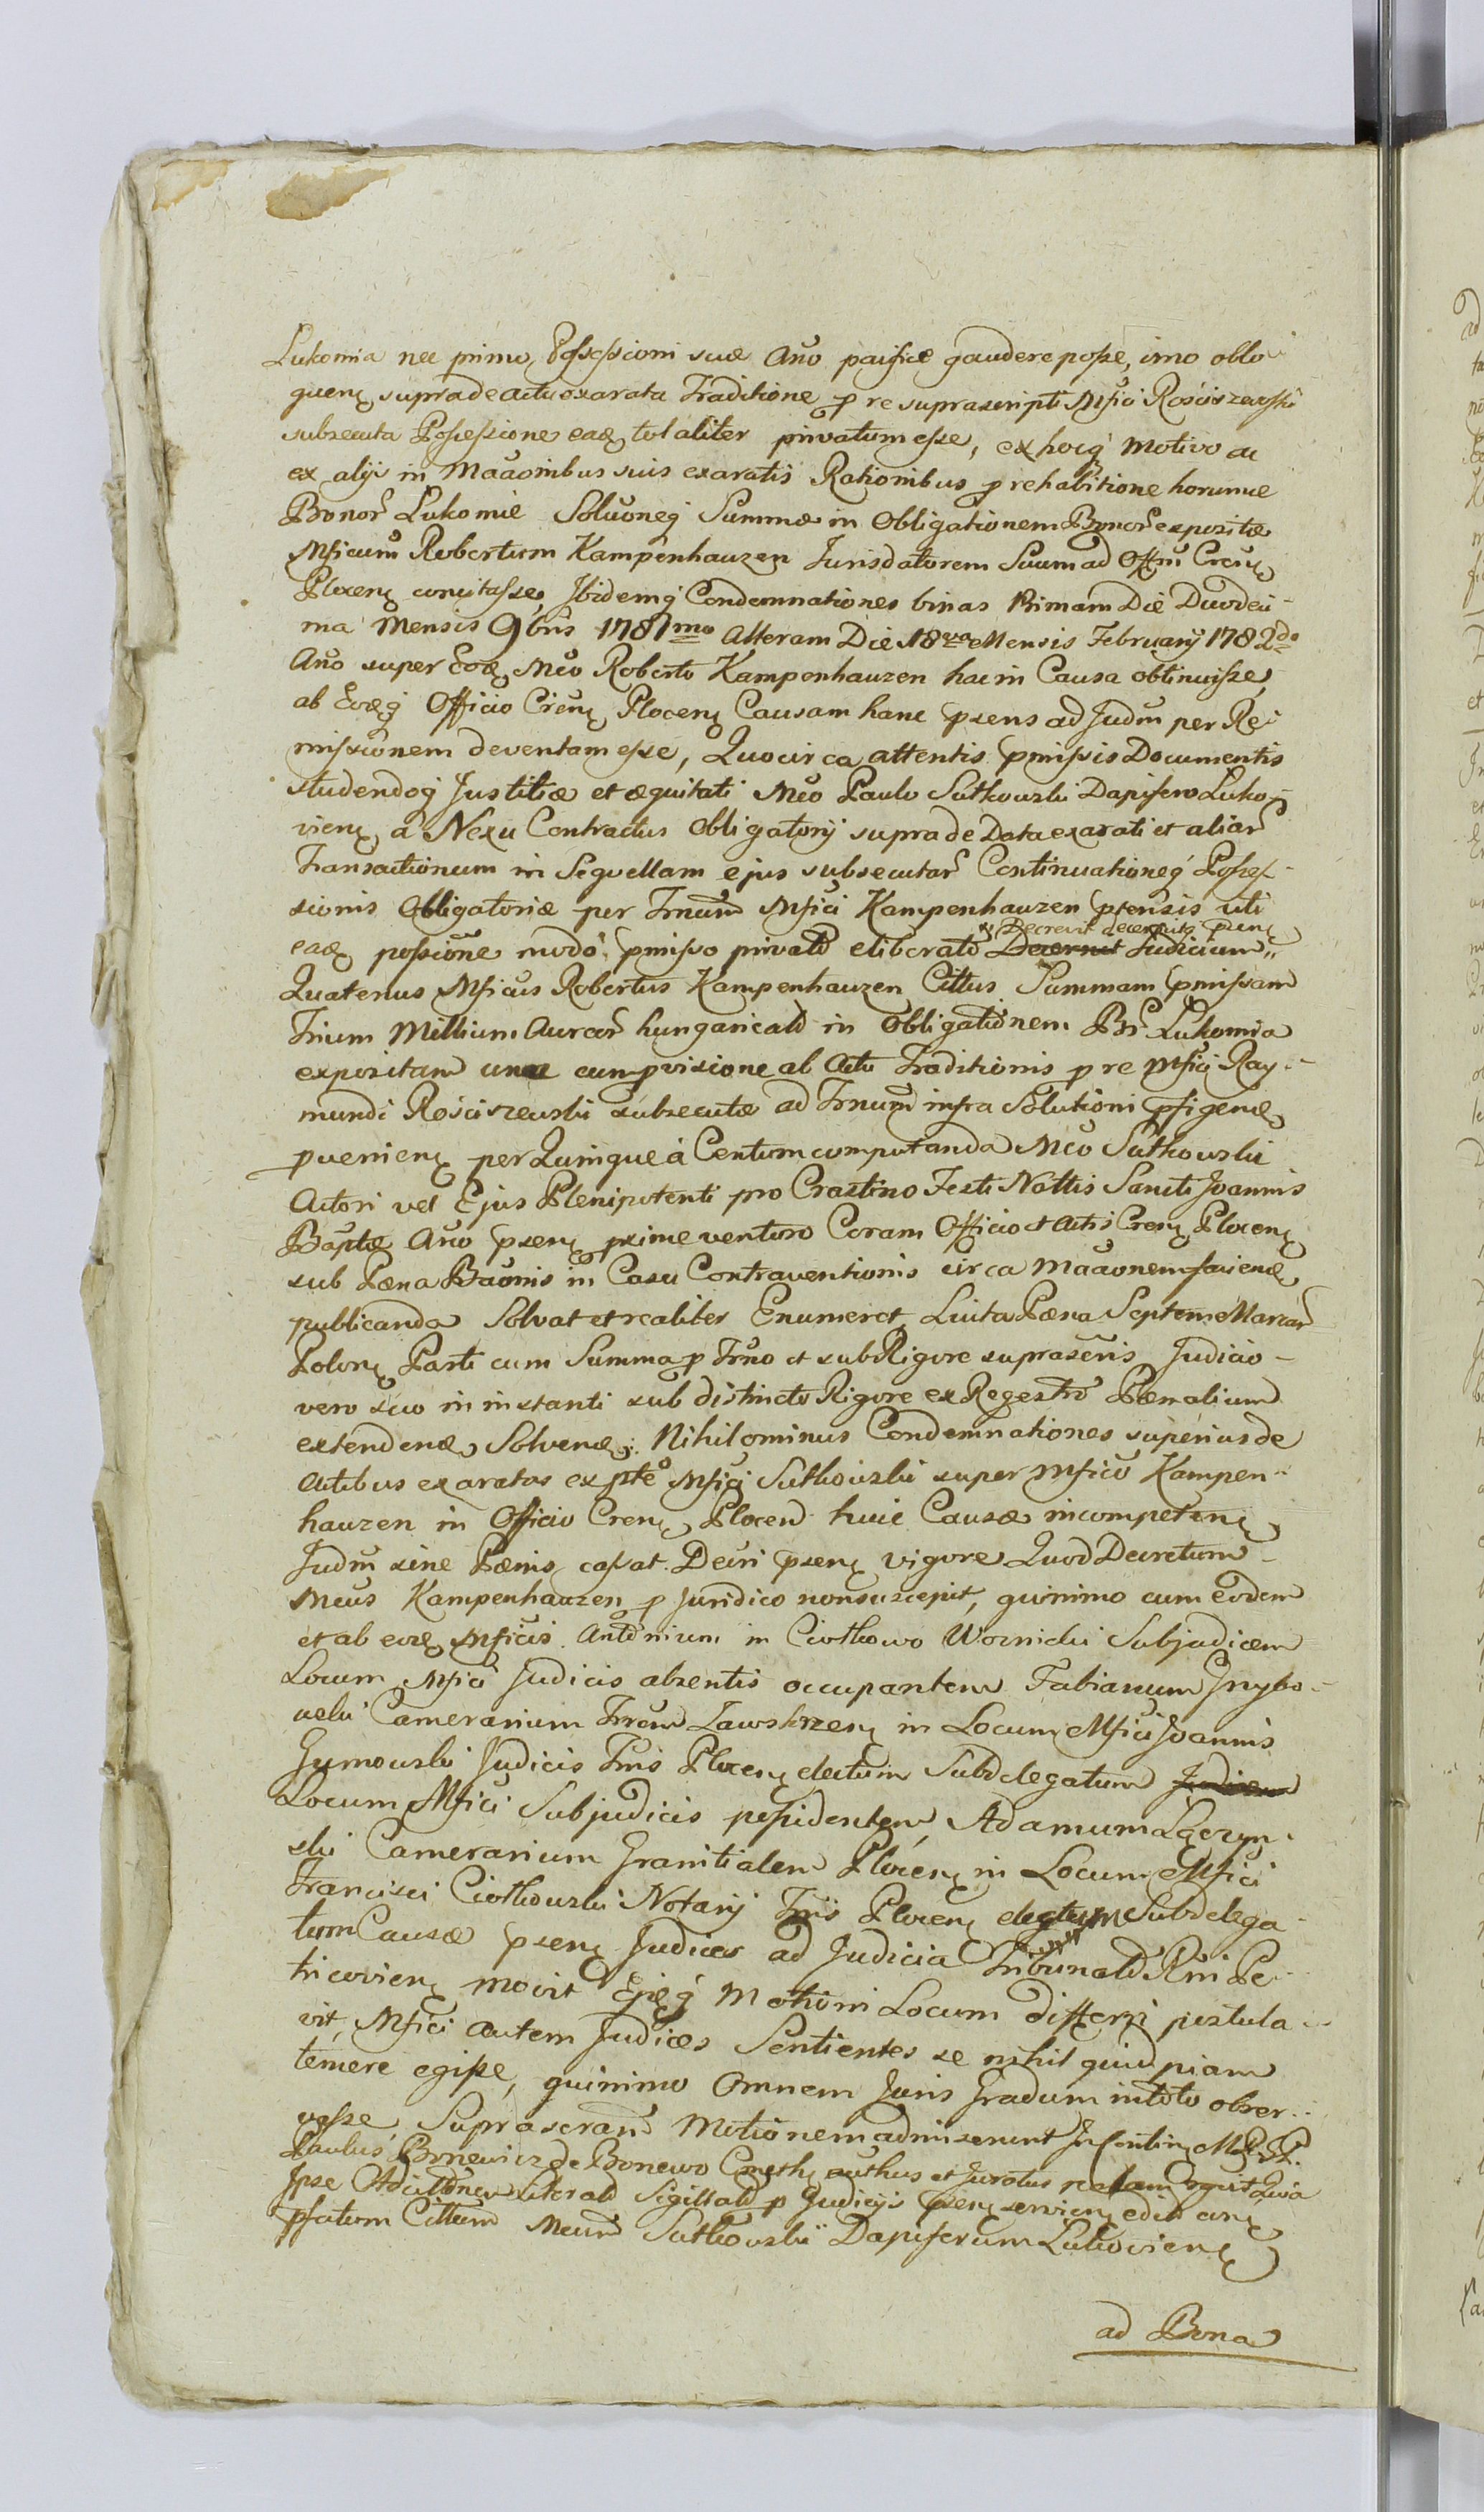 Lukomia nec primo Possessioni suæ Año pacificæ gaudere posse, imo obloquenꝭ
supra de actu exarata Traditione p re suprascripti Mfici Rościszewski
subsecuta Possessione eaꝗ totaliter privatum esse, ex hocq́ Motivo ac
ex alijs in Maaonibus suis exaratis Rationibus p rehabitione horumce
Bonor̃ Lukomie Soluoneq́ Summæ in Obligationem Bonor̃ expositæ
Mficum Robertum Kampenhauzen Jurisdatorem Suum ad Offm̃ Crenꝭ
Plocenꝭ concitasse, Ibidemq́ Condemnationes binas Primam Die Duodeci-
ma Mensis 9bris 1781mo Alteram Die 18va Mensis February 1782do
Año super Eoꝗ Mco Roberto Kampenhauzen hac in Causa obtinuisse,
ab Eoꝗq́ Officio Crenꝭ Plocenꝭ Causam hanc psens ad Judm̃ per Re-
missionem deventam esse, Quocirca attentis pmissis Documentis
studendoq́ Justitiæ et æquitati Mco Paulo Sutkowski Dapifero Luko-
vienꝭ a Nexu Contractus Obligatorij supra de Data exarati et aliar̃
Transactionum in Sequellam ejus subsecutar̃ Continuationeq́ Posses-
sionis Obligatoriæ per Trnum̃ Mfici Kampenhauzen ptensis uti
eaꝗ possione modo pmisso privato eliberato Decernit Judicium
" Decrevit decernitq psenꝭ
Quatenus Mficus Robertus Kampenhauzen Cittus Summam pmissam
Trium Millium Aureor̃ hungaricald in Obligationem Br̃ Lukomia
expositam una cum pvisione ab Actu Traditionis p re Mfici Ray-
mundi Rościszewski subsecutæ ad Trnum̃ infra Solutioni pfigenꝗ
pvenienꝭ per Quinque à Centum computanda Mco Sutkowski
Actori vel Ejus Plenipotenti pro Crastino Festi Nattis Sancti Joannis
Baptæ Año psenꝭ pxime venturo Coram Officio et Actis Crenꝭ Plocenꝭ
sub Pæna Baonis in Casu Contraventionis circa Maaonem facienꝗ
publicanda Solvat et realiter Enumeret, Luita Pæna Septem Marcar̃
Polonꝭ Parti cum Summa p Trño et sub Rigore suprasc̃ris Judicio-
vero suo in instanti sub distincto Rigore ex Regestro Pænalium
extendenꝗ Solvenꝗ. Nihilominus Condemnationes superius de
Actibus exaratas ex pte Mfici Sutkowski super Mfico Kampen-
hauzen in Officio Crenꝭ Plocend huic Causæ incompetenꝭ
Judm̃ sine Pænis cassat. Decri psenꝭ vigore Quod Decretum
Mcus Kampenhauzen p juridico non suscepit, quinimo cum eodem
et ab eoꝗ Mficis Antonium in Ciotkowo Woznicki Subjudicem
Locum Mfici Judicis absentis occupantem Fabianum Grzybo-
wski Camerarium Trrem̃ Zawskrzenꝭ in Locum Mfici Joannis
Gumowski Judicis Tris Plocenꝭ electum Subdelegatum
Locum Mfici Subjudicis possidentem, Adamum Lęczyn-
ski Camerarium Granitialem Plocenꝭ in Locum Mfici
Francisci Ciotkowski Notarij Tris Plocenꝭ electum Subdelega-
tum Causæ psenꝭ Judices ad Judicia Tribunald Rñi Pe-
tricovienꝭ movit Ejꝗq́ Motioni Locum differri postula-
vit, Mfici autem Judices Sentientes se nihil quidpiam
temere egisse, quinimo Omnem Juris Gradum in toto obser-
vasse, Suprascram̃ Motionem admiserunt In
Paulus Bonewicz de Bonewo et Juratus Quia
Ipse Adcittonem Literald Sigillald p Judicijs psenꝭ
pfatum Cittum Mcum Sutkowski Dapiferum Lukovienꝭ
ad Bona